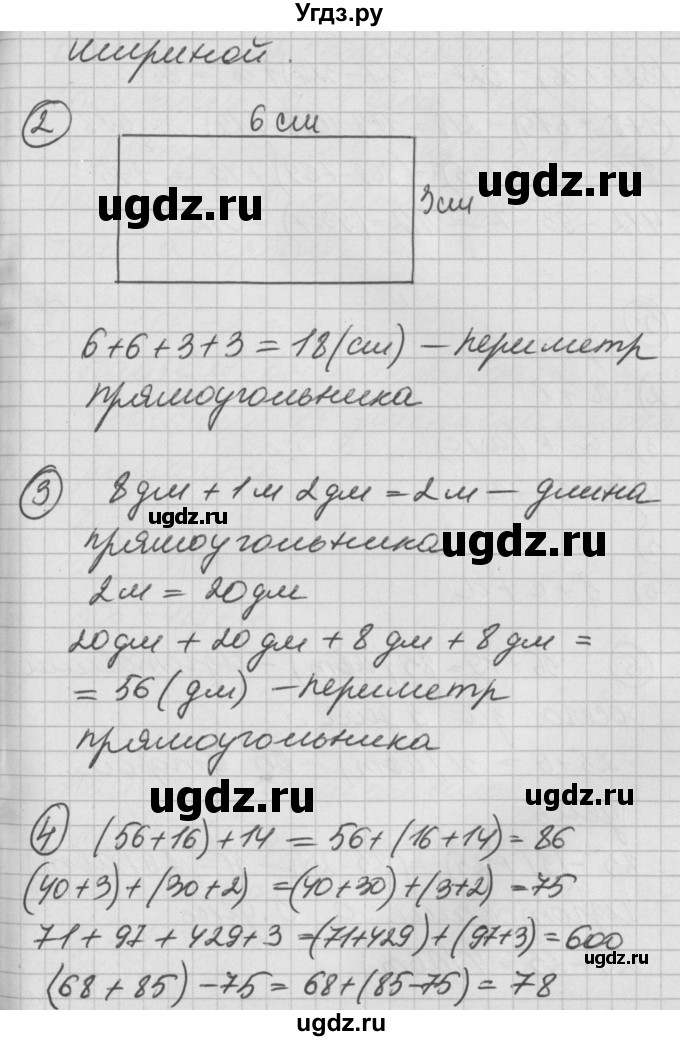 Угдз.ру
шириной.
2 6 см
ugdz.ru
ugdz.ru
3 см
6+6+3+3=18(см) – периметр
прямоугольника
3 8 дм + 1 м 2 дм = 2 м – длина
ugdz.ru
прямоугольника
ugdz.ru
2 м = 20 дм
20 дм + 20 дм + 8 дм + 8 дм =
= 56 (дм) – периметр
прямоугольника
ugdz.ru
ugdz.ru
4 (56+16)+14 = 56+(16+14)=86
(40+3)+(30+2) =(40+30)+(3+2) =75
71+97+429+3 =(71+429)+(97+3)=600
(68+85)-75= 68+(85-75)=78
ugdz.ru